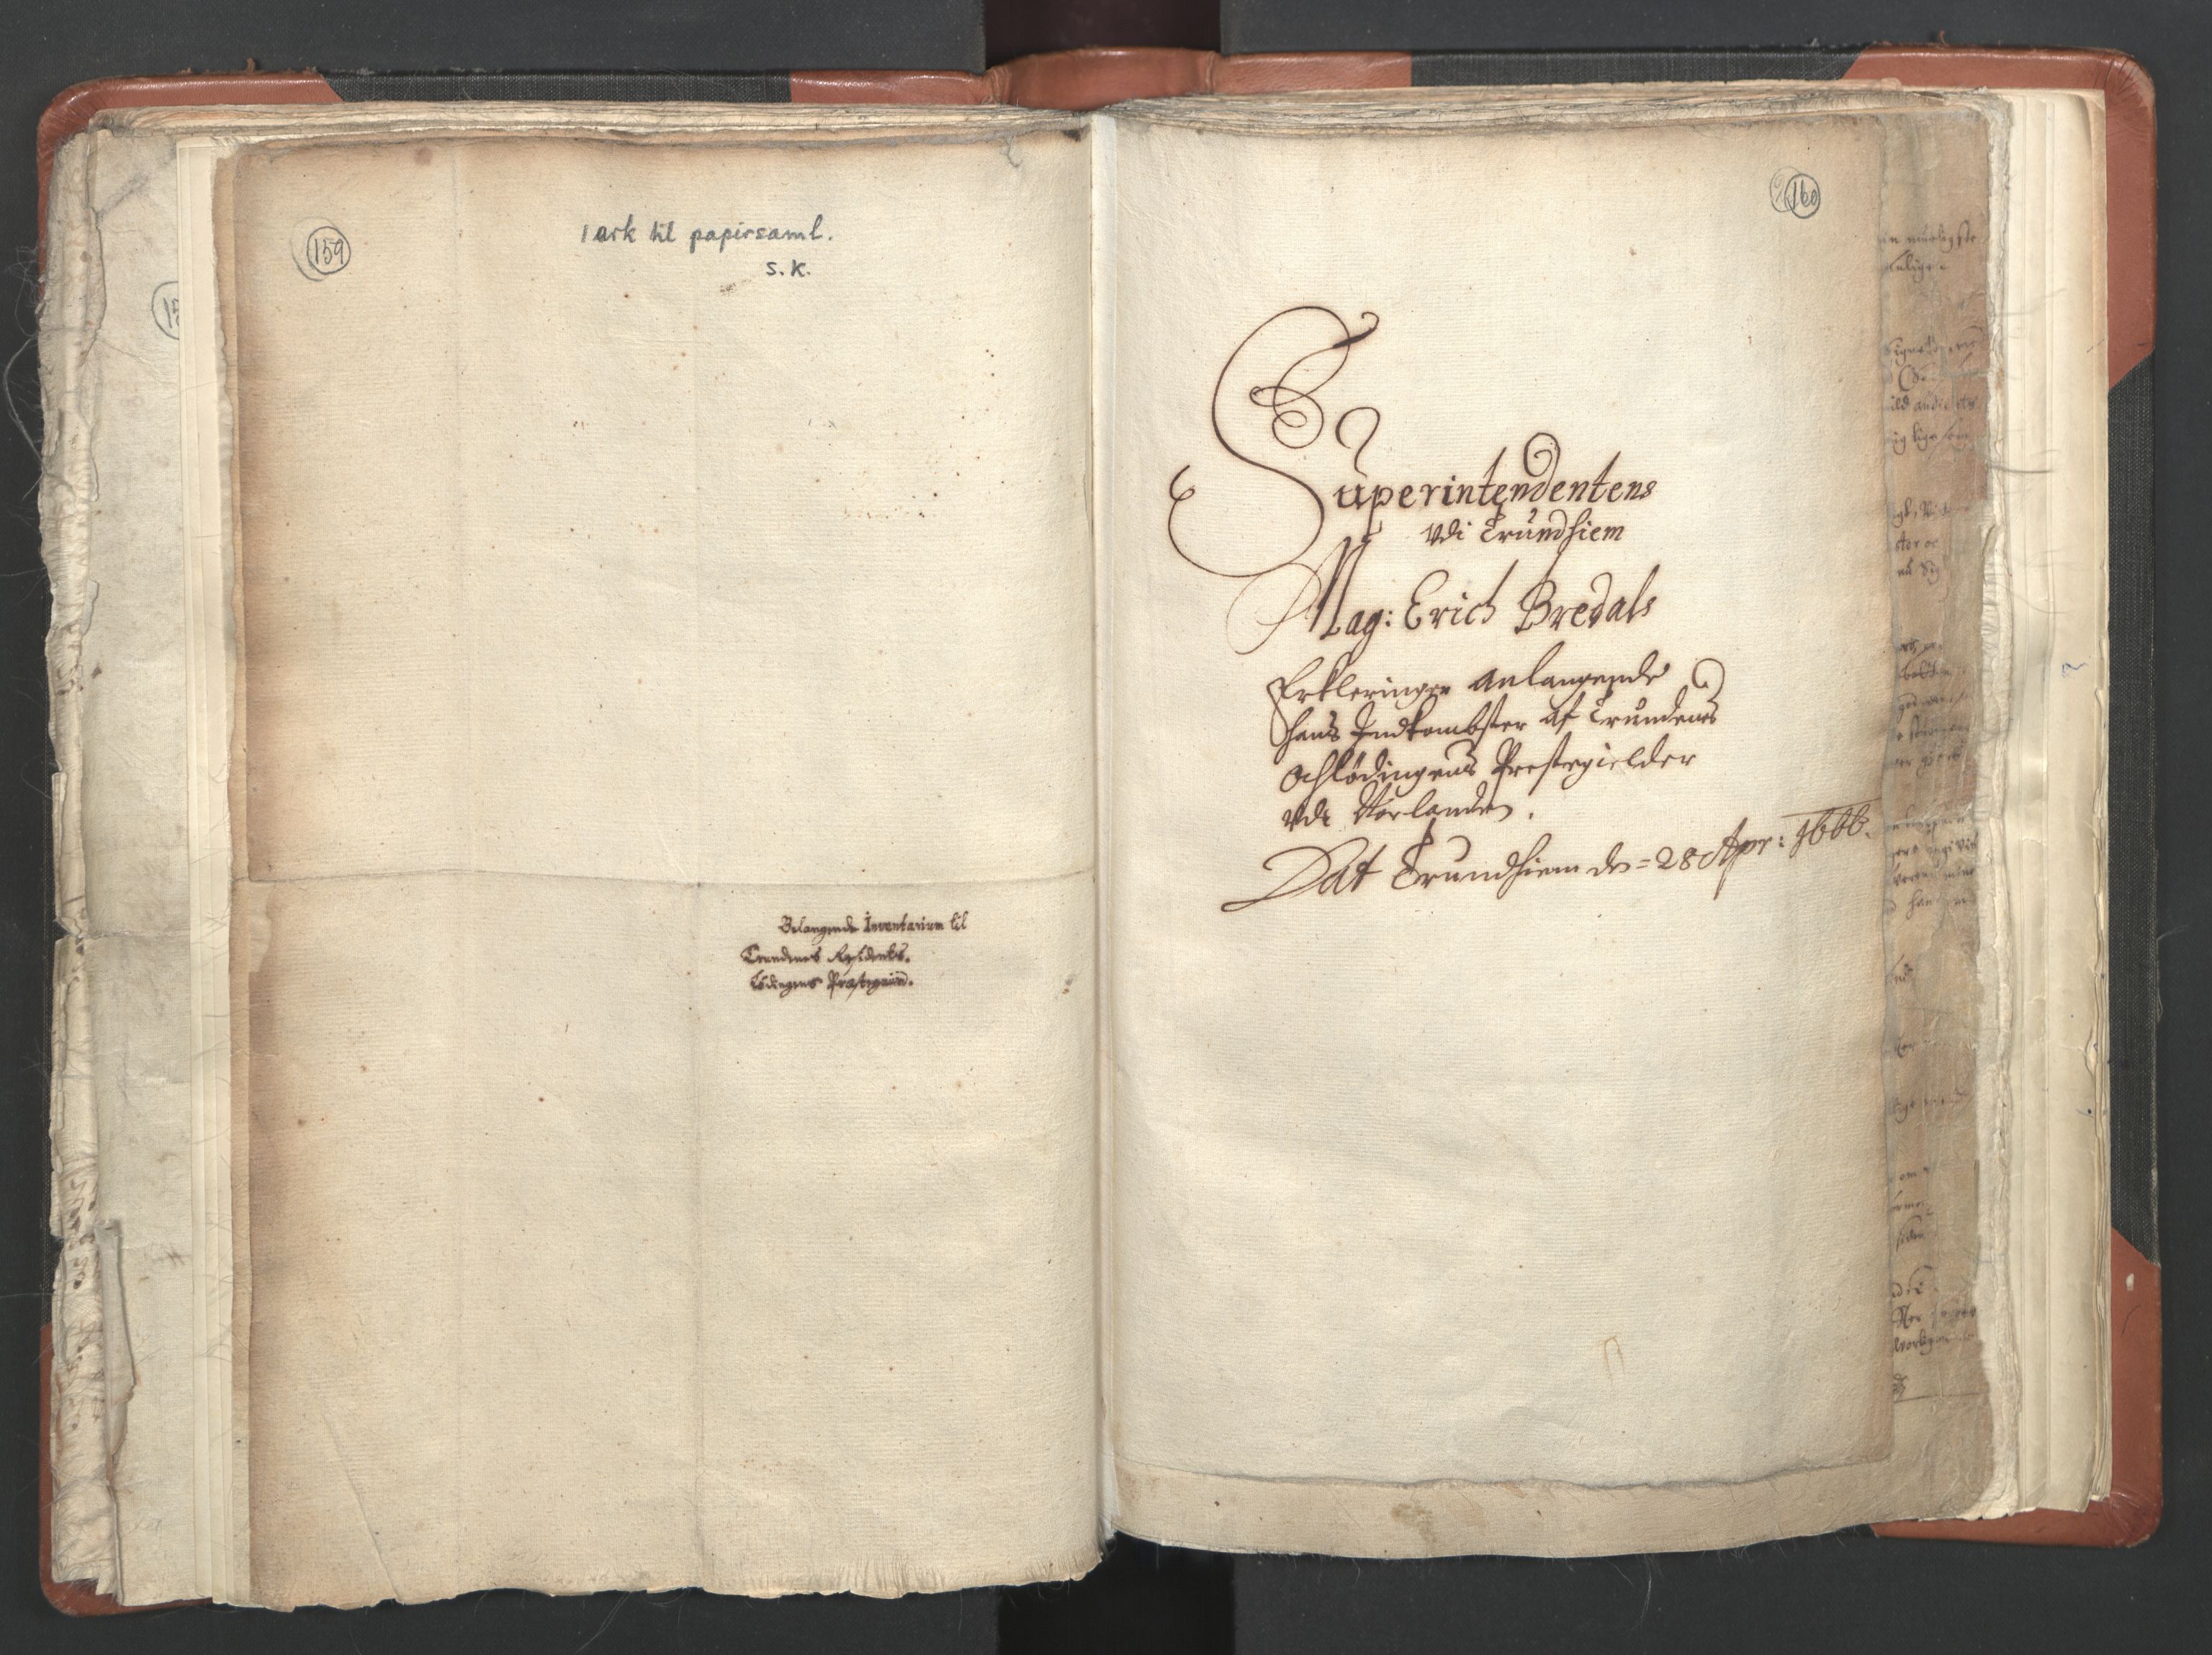 159
1 ark til papirsaml.
s. K.
Belangende Inventarium til
Trundenes Residents.
Lödingens Præstegaard.
160
Superintendentens
Vdi Trundhiem
Mag: Erich Bredals
Erkleringer anlangende
hans Indkombster af Trundenes
och Lödingens Prestegielder
Vdi Norlanden.
Dat Trundhiem den 28 Apr: 1666.